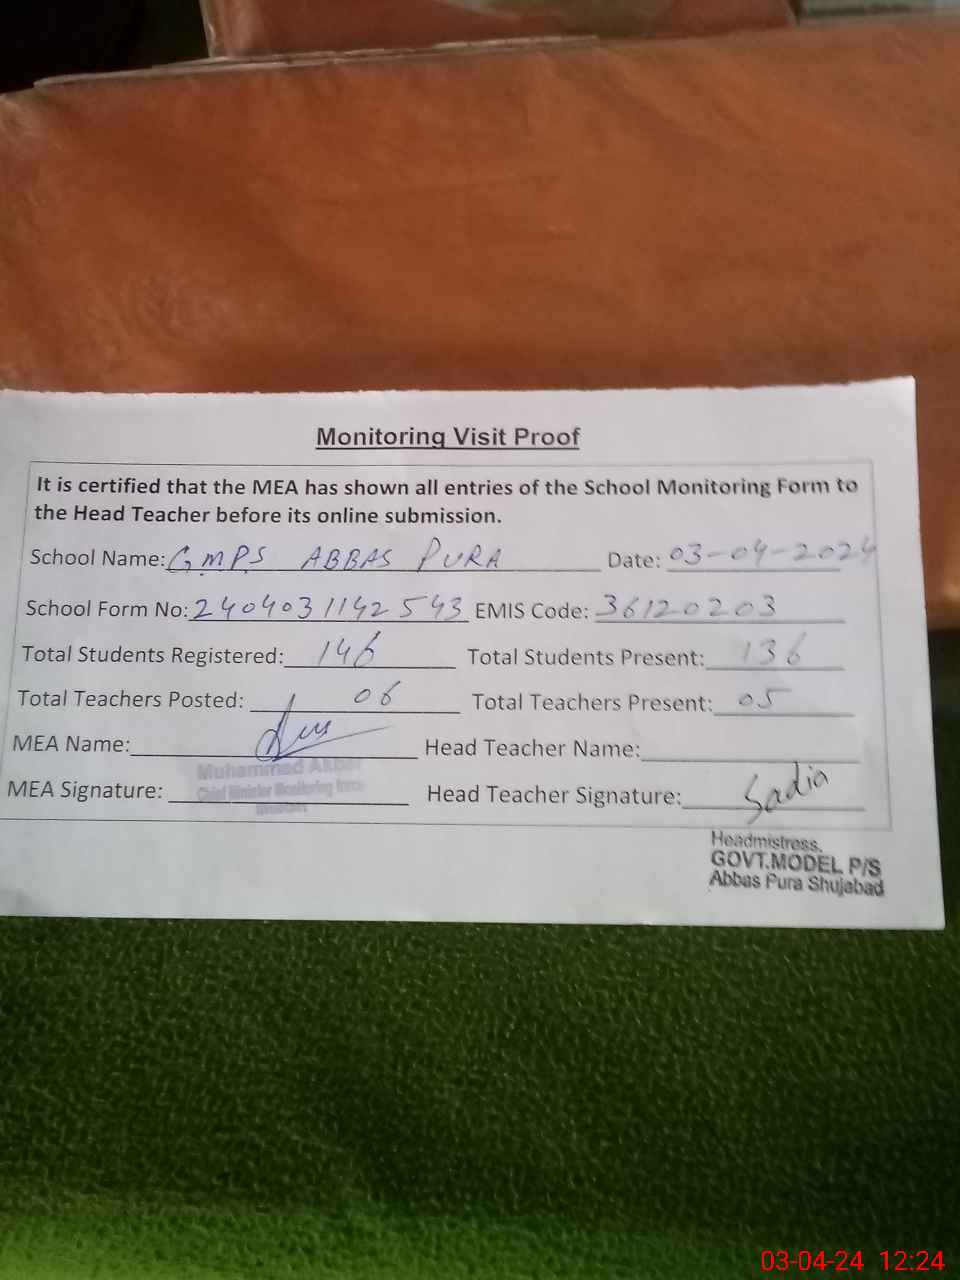 Monitoring Visit Proof
It is certified that the MEA has shown all entries of the School Monitoring Form to
the Head Teacher before its online submission.
School Name: GMPS ABBAS PURA Date: 03-04-2024
School Form No: 2404031142543 EMIS Code: 36120203
Total Students Registered: 146 Total Students Present: 136
Total Teachers Posted: 06 Total Teachers Present: 05
MEA Name: Head Teacher Name:
Muhammad Akbar
Chief Minister Monitoring Force
MEA Signature: Head Teacher Signature: Sadia
Headmistress,
GOVT.MODEL P/S
Abbas Pura Shujabad
03-04-24 12:24